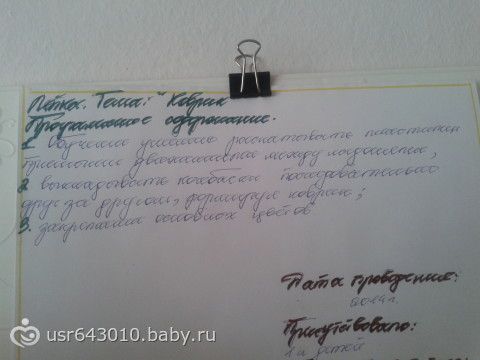 Лепка. Тема: "Коврик
Программное содержание.
1. Обучение умению раскатывать пластилин
прямыми движениями между ладонями,
2. выкладывать колбаски последовательно
друг за другом, формируя коврик;
3. закрепление основных цветов
Дата проведения:
2014г.
Присутствовало:
11 детей
usr643010.baby.ru